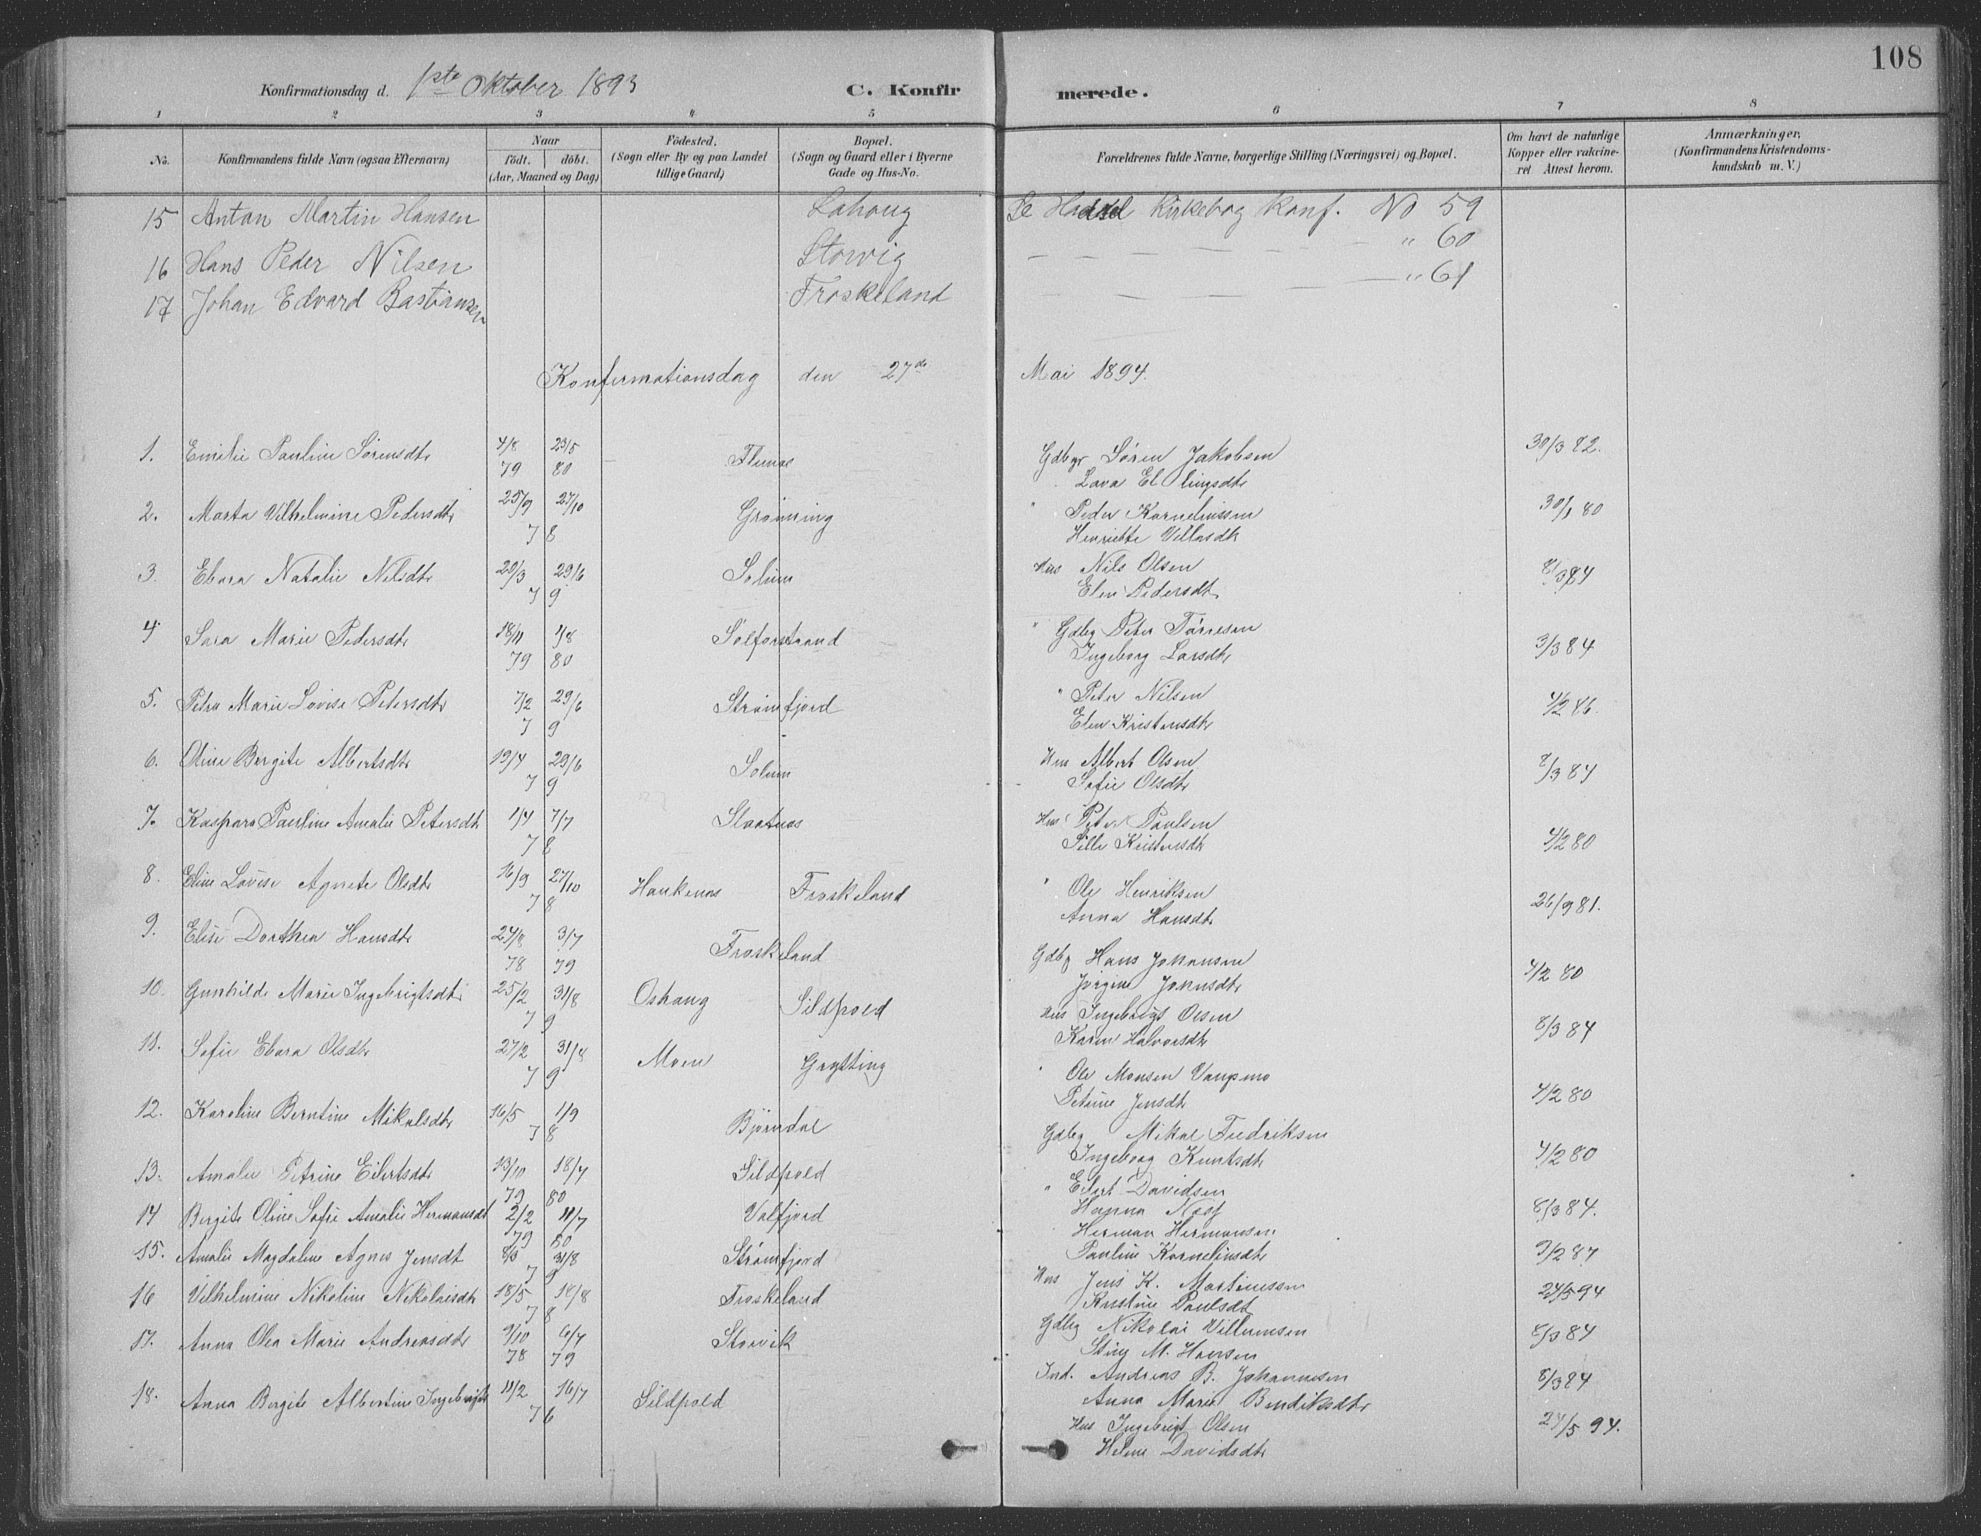 108
Konfirmationsdag d. 1ste Oktober 1893 C. Konfirmerede.
1 2 3 4 5 6 7 8
No. Konfirmandens fulde Navn (ogsaa Efternavn) Naar født. døbt. (Aar, Maaned og Dag) Fødested. (Sogn eller By og paa Landet tillige Gaard) Bopæl. (Sogn og Gaard eller i Byerne Gade og Hus-No. Forældrenes fulde Navne, borgerlige Stilling (Næringsvei) og Bopæl. Om havt de naturlige Kopper eller vakcineret Attest herom. Anmærkninger, (Konfirmandens Kristendomskundskab m. V.)
15 Anton Martin Hansen Lahaug Se Hadsel Kirkebog Konf. No 59
16 Hans Peder Nilsen Storvig — — — " 60
17 Johan Edvard Bastiansen Froskeland — — — " 61
Konfirmationsdag den 27de Mai 1894.
1. Emelie Pauline Sørensdtr 4/8 79 23/5 80 Flenæs Gdbgr Søren Jakobsen 30/3 82.
Lava Ellingsdtr
2. Marta Vilhelmine Pedersdtr 25/9 27/10 78 Grønning " Peder Korneliussen 30/1 80
Henriette Villasdtr
3. Ebara Natalie Nilsdtr 20/3 29/6 79 Solum Hus Nils Olsen 8/3 84
Elen Pedersdtr
4 Sara Marie Pedersdtr 18/11 79 1/8 80 Selforstrand " Gdbg Peter Tørresen 3/3 84
Ingeborg Larsdtr
5. Petra Marie Lovise Petersdtr 7/2 29/6 79 Strømfjord " Peter Nilsen 4/2 86.
Elen Kristensdtr
6. Oline Bergite Albertsdtr 19/4 29/6 79 Solum Hus Albert Olsen 8/3 84
Sofie Olsdtr
7. Kaspara Pauline Amalie Petersdtr 1/4 7/7 78 Slaatnæs Hus Peter Paulsen 4/2 80
Sille Kristensdtr
8. Eline Lovise Agnete Olsdtr 16/9 27/10 78 Haukenæs Froskeland " Ole Henriksen 26/9 81.
Anna Hansdtr
9. Elise Dorthea Hansdtr 24/8 78 3/7 79 Froskeland Gdbg Hans Johansen 4/2 80
Jørgine Johnsdtr
10. Gunhilde Marie Ingebrigtsdtr 25/2 31/8 79 Oshaug Sildpold Hus Ingebrigt Olsen 8/3 84
Karen Halvorsdtr
11. Sofie Ebara Olsdtr 27/2 31/8 79 Moen Grytting " Ole Monsen Vangsmo 4/2 80
Petrine Jensdtr
12. Karoline Berntine Mikalsdtr 16/5 1/9 78 Bjørndal Gdbg Mikal Fredriksen 4/2 80
Ingeborg Knutsdtr
13. Amalie Petrine Eilertsdtr 13/10 79 18/7 80 Sildpold " Eilert Davidsen 8/3 84.
Hanna
14 Bergite Oline Sofie Amalie Hermansdt 2/2 79 11/7 80 Valfjord Herman Hermansen 9/2 87
Pauline Korneliusdtr
15. Amalie Magdaline Agnes Jensdt 8/3 31/8 79 Strømfjord Hus Jens K. Martinussen 24/5 94
Kristine Paulsdt
16 Vilhelmine Nikoline Nikolaisdtr 18/5 18/8 78 Froskeland Gdbg Nikolai Villumsen 8/3 84
M. Hansen
17. Anna Olea Marie Andreasdtr 9/10 78 6/7 79 Storvik Ind. Andreas B. Johannesen 8/3 84
Anna Marie Bendiksdtr
18. Anna Bergite Albertine Ingebrigtdt 11/2 16/7 76 Sildpold Hus Ingebrigt Olsen 24/5 94.
Helene Davidsdtr